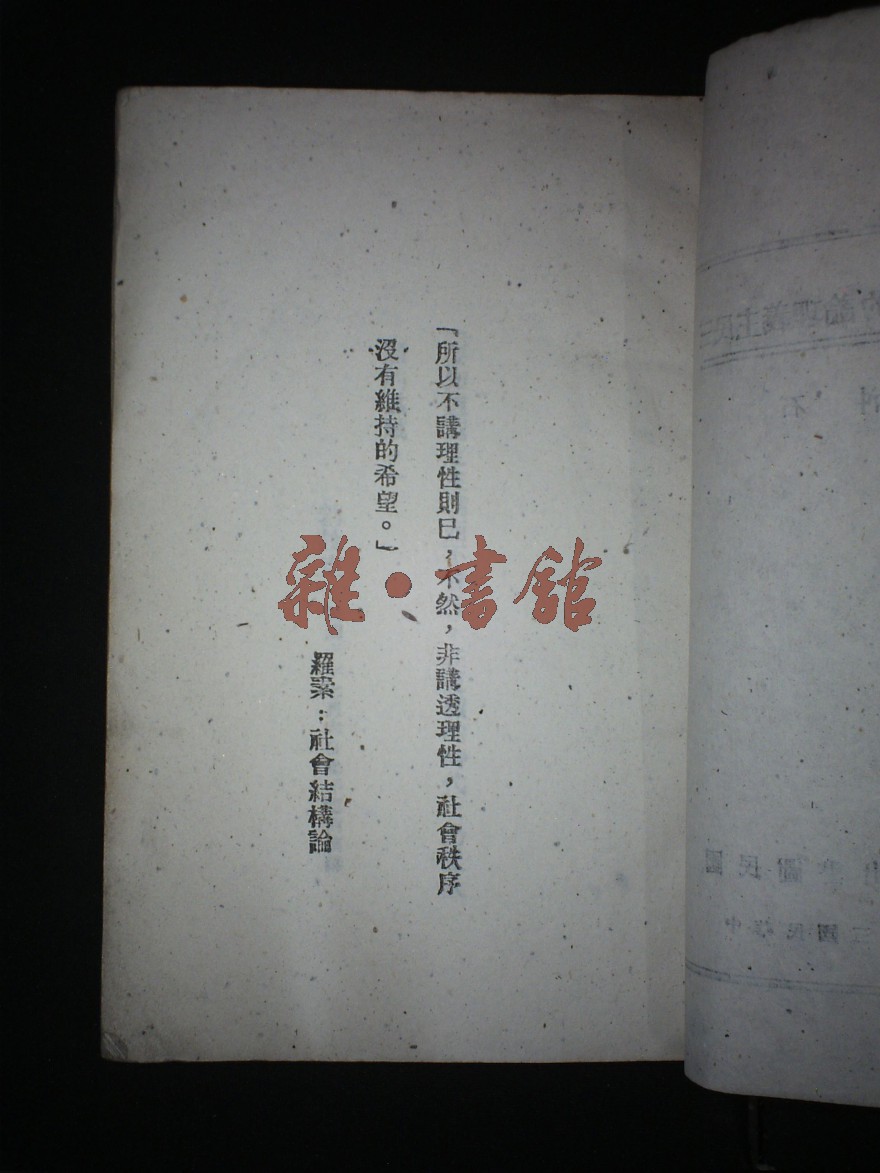 「所以不講理性則已，不然，非講透理性，社會秩序
沒有維持的希望。」
羅素：社會結構論
雜·書館